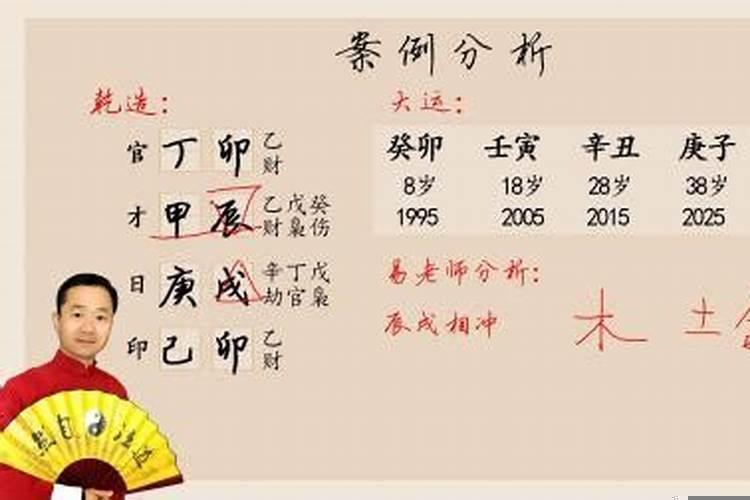 案例分析
乾造：
大运：
官 丁 卯 乙财
才 甲 辰 乙财 戊枭 癸伤
日 庚 戌 辛劫 丁官 戊枭
印 己 卯 乙财
癸卯 壬寅 辛丑 庚子
8岁 18岁 28岁 38岁
1995 2005 2015 2025
易老师分析：
辰戌相冲
木 土